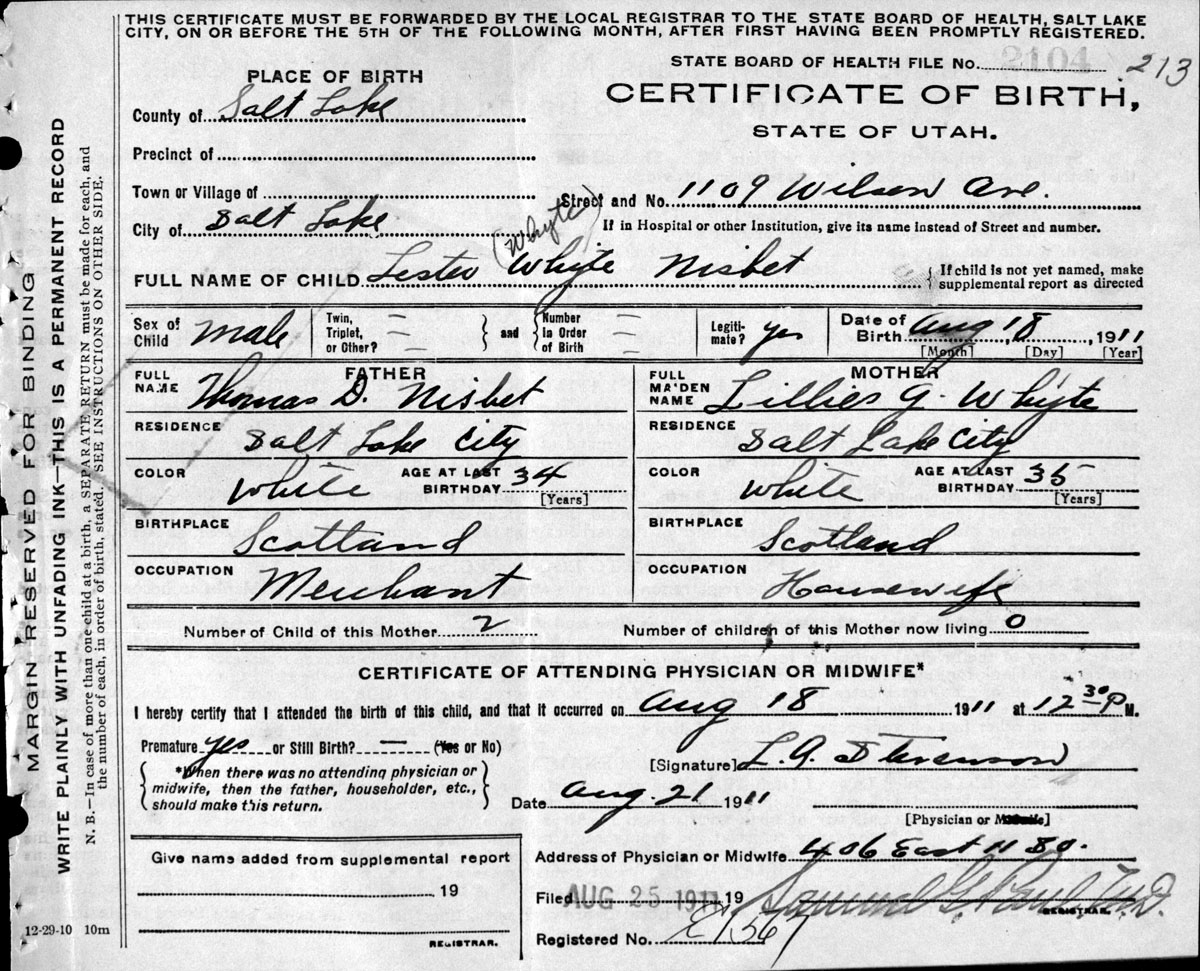 THIS CERTIFICATE MUST BE FORWARDED BY THE LOCAL REGISTRAR TO THE STATE BOARD OF HEALTH, SALT LAKE
CITY, ON OR BEFORE THE 5TH OF THE FOLLOWING MONTH, AFTER FIRST HAVING BEEN PROMPTLY REGISTERED.
STATE BOARD OF HEALTH FILE No. 2104 213
PLACE OF BIRTH
CERTIFICATE OF BIRTH,
STATE OF UTAH.
County of Salt Lake
Precinct of
Town or Village of
Street and No. 1109 Wilson Ave.
City of Salt Lake
If in Hospital or other Institution, give its name instead of Street and number.
(Whyte)
FULL NAME OF CHILD Lester Whyte Nisbet
{If child is not yet named, make
supplemental report as directed
Sex of Child Male
Twin, Triplet, or Other? and Number in Order of Birth
Legitimate? yes
Date of Birth Aug 18, 1911
[Month] [Day] [Year]
FATHER
FULL NAME Thomas D. Nisbet
RESIDENCE Salt Lake City
COLOR White AGE AT LAST BIRTHDAY 34 [Years]
BIRTHPLACE Scotland
OCCUPATION Merchant
MOTHER
FULL MAIDEN NAME Lillies G. Whyte
RESIDENCE Salt Lake City
COLOR White AGE AT LAST BIRTHDAY 35 [Years]
BIRTHPLACE Scotland
OCCUPATION Housewife
Number of Child of this Mother 2
Number of children of this Mother now living 0
CERTIFICATE OF ATTENDING PHYSICIAN OR MIDWIFE*
I hereby certify that I attended the birth of this child, and that it occurred on Aug 18 1911 at 12 30 P M.
Premature yes or Still Birth? — (Yes or No)
*When there was no attending physician or
midwife, then the father, householder, etc.,
should make this return.
[Signature] L. A. Stevenson
Date Aug. 21 1911
[Physician or Midwife]
Give name added from supplemental report
19
REGISTRAR.
Address of Physician or Midwife 406 East 11 So.
Filed AUG 25 1911 19 Samuel G. Paul M.D.
REGISTRAR.
Registered No. 1367
12-29-10 10m
MARGIN RESERVED FOR BINDING
WRITE PLAINLY WITH UNFADING INK—THIS IS A PERMANENT RECORD
N. B.—In case of more than one child at a birth, a SEPARATE RETURN must be made for each, and
the number of each, in order of birth, stated. SEE INSTRUCTIONS ON OTHER SIDE.